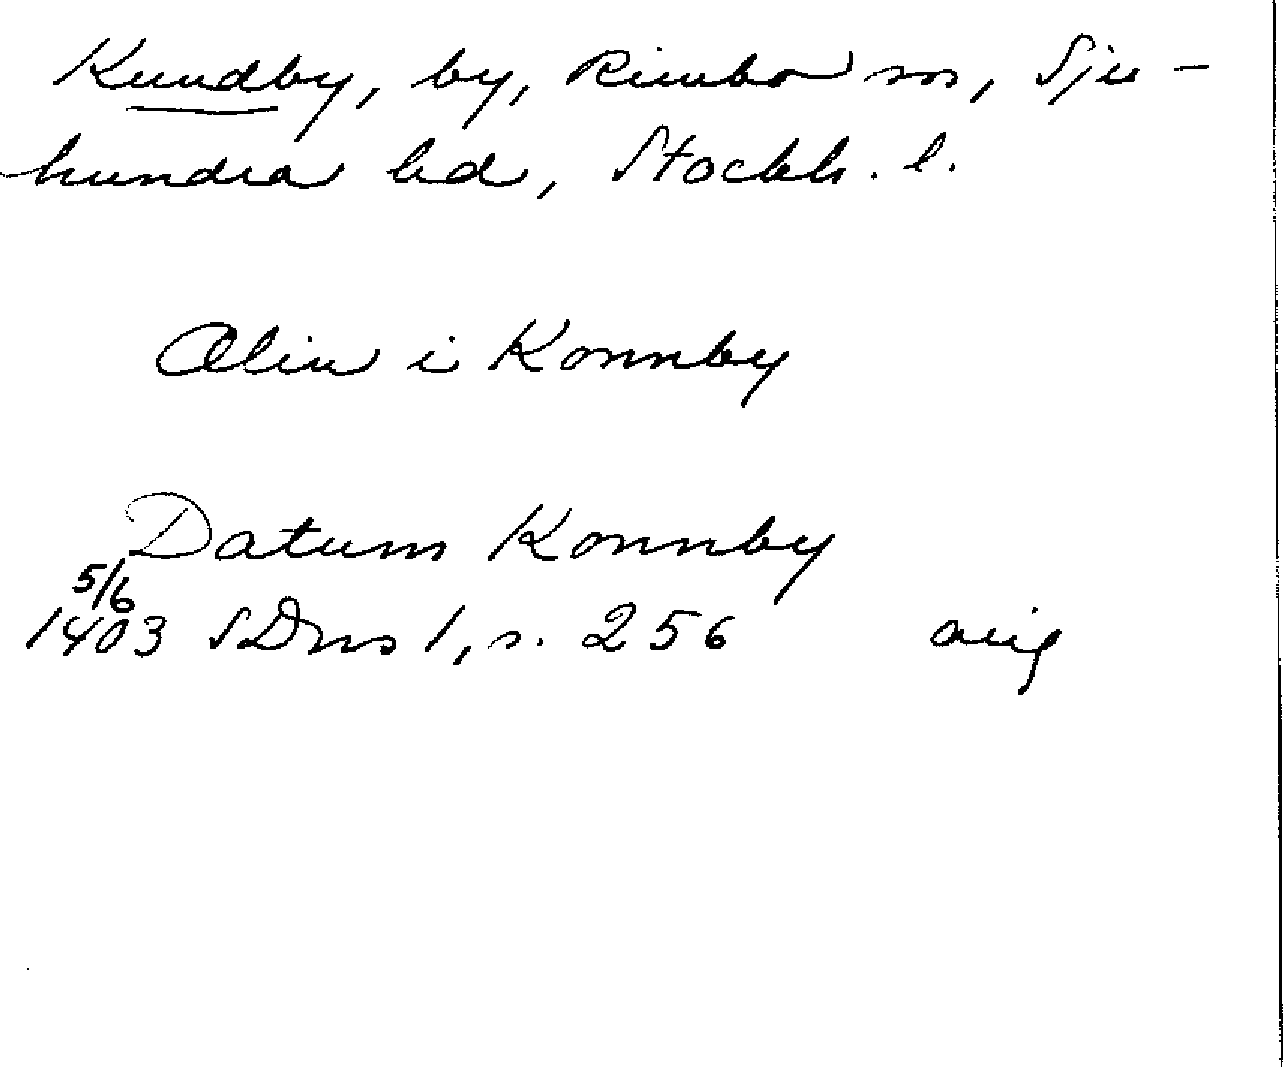 Kundby, by, Rimbo sn, Sju-
hundra hd, Stockh. l.
Olin i Konnby
Datum Konnby
5/6
1403 SDns 1, s. 256 orig